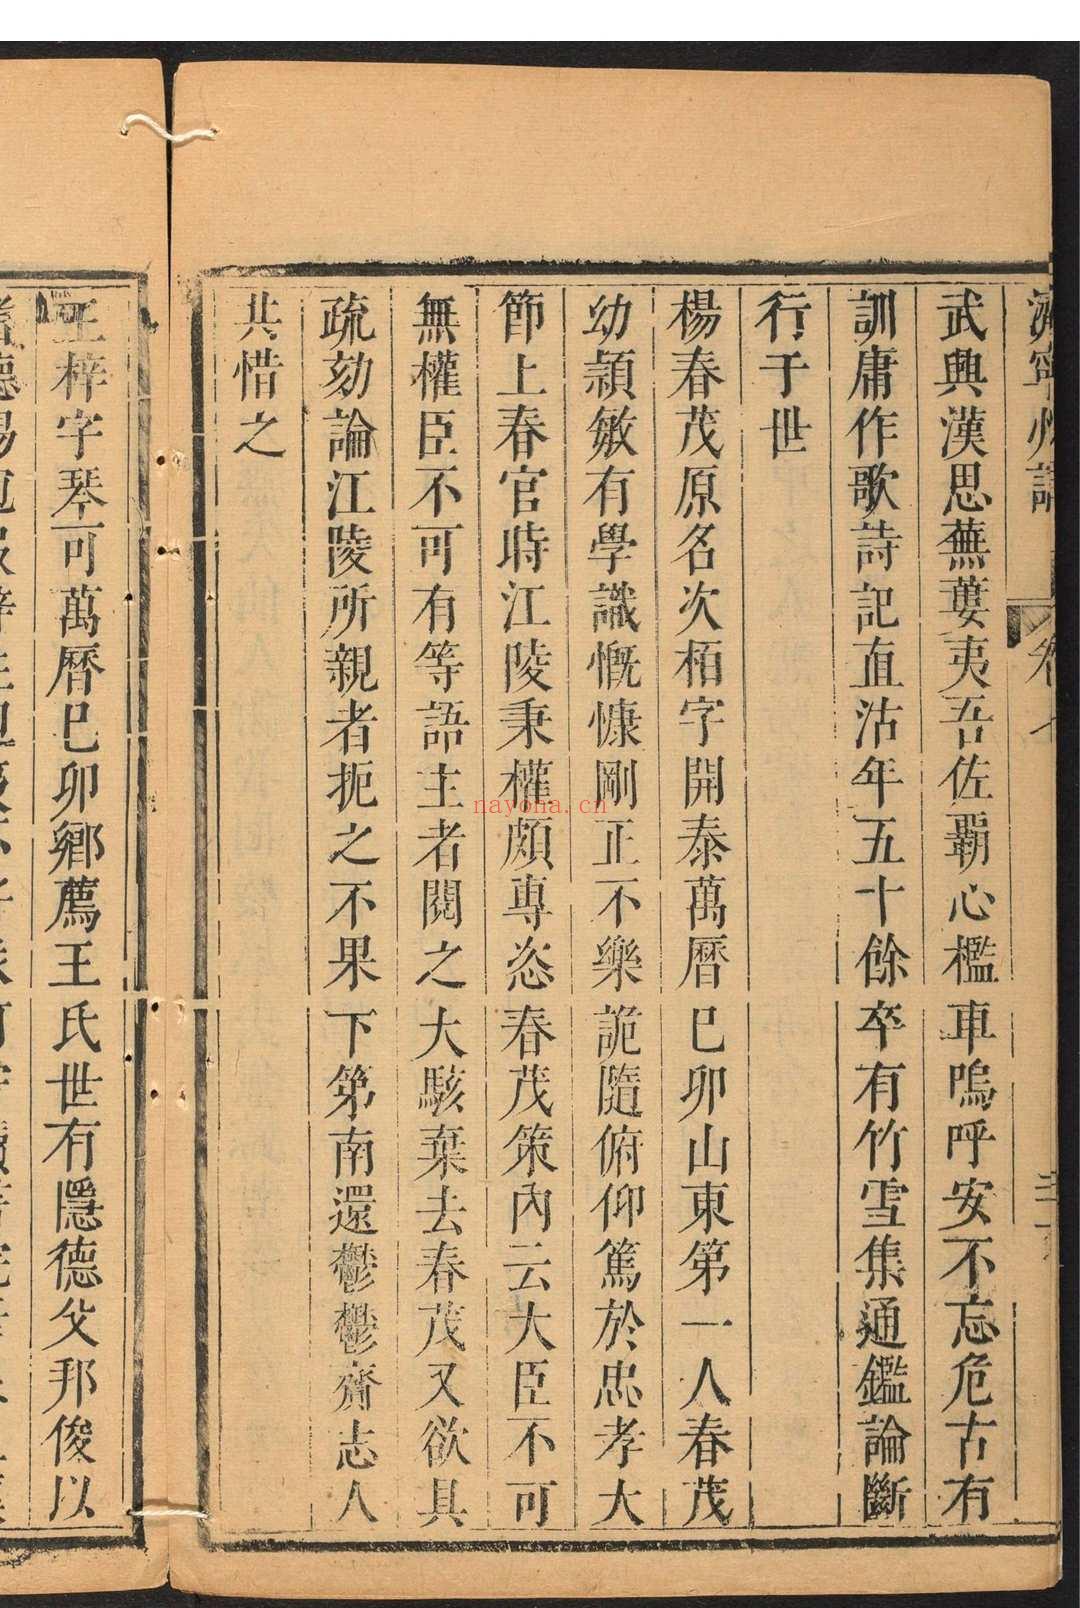 濟寧州誌 卷七
武興漢思蕪蔞夷吾佐覇心檻車嗚呼安不忘危古有
訓庸作歌詩記直沽年五十餘卒有竹雪集通鑑論斷
行于世
楊春茂原名次栢字開泰萬曆巳卯山東第一人春茂
幼頴敏有學識慨慷剛正不樂詭隨俯仰篤於忠孝大
節上春官時江陵秉權頗專恣春茂策內云大臣不可
無權臣不可有等語主者閱之大駭棄去春茂又欲具
疏劾論江陵所親者扼之不果下第南還鬱鬱齎志人
共惜之
王梓字琴可萬曆巳卯鄉薦王氏世有隱德父邦俊以
nayona.cn